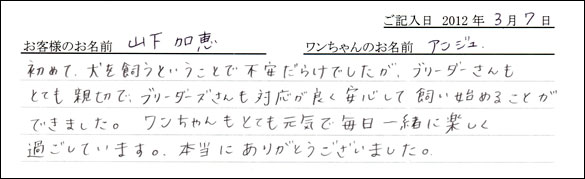 ご記入日 2012 年 3 月 7 日
お客様のお名前 山下 加恵 ワンちゃんのお名前 アンジュ.
初めて、犬を飼うということで不安だらけでしたが、ブリーダーさんも
とても親切で、ブリーダーズさんも対応が良く安心して飼い始めることが
できました。 ワンちゃんもとても元気で毎日一緒に楽しく
過ごしています。本当にありがとうございました。